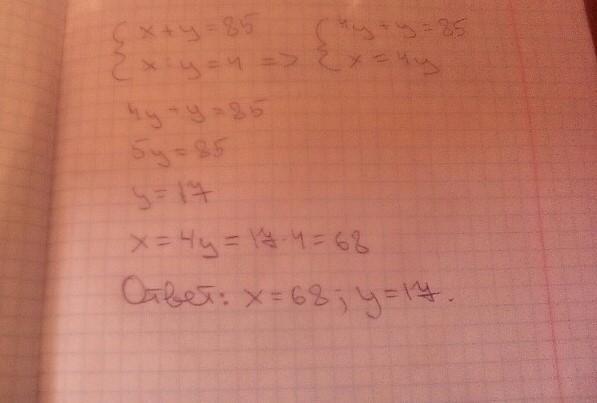 { x + y = 85 { 4y + y = 85
{ x : y = 4 => { x = 4y
4y + y = 85
5y = 85
y = 17
x = 4y = 17 · 4 = 68
Ответ: x = 68; y = 17.